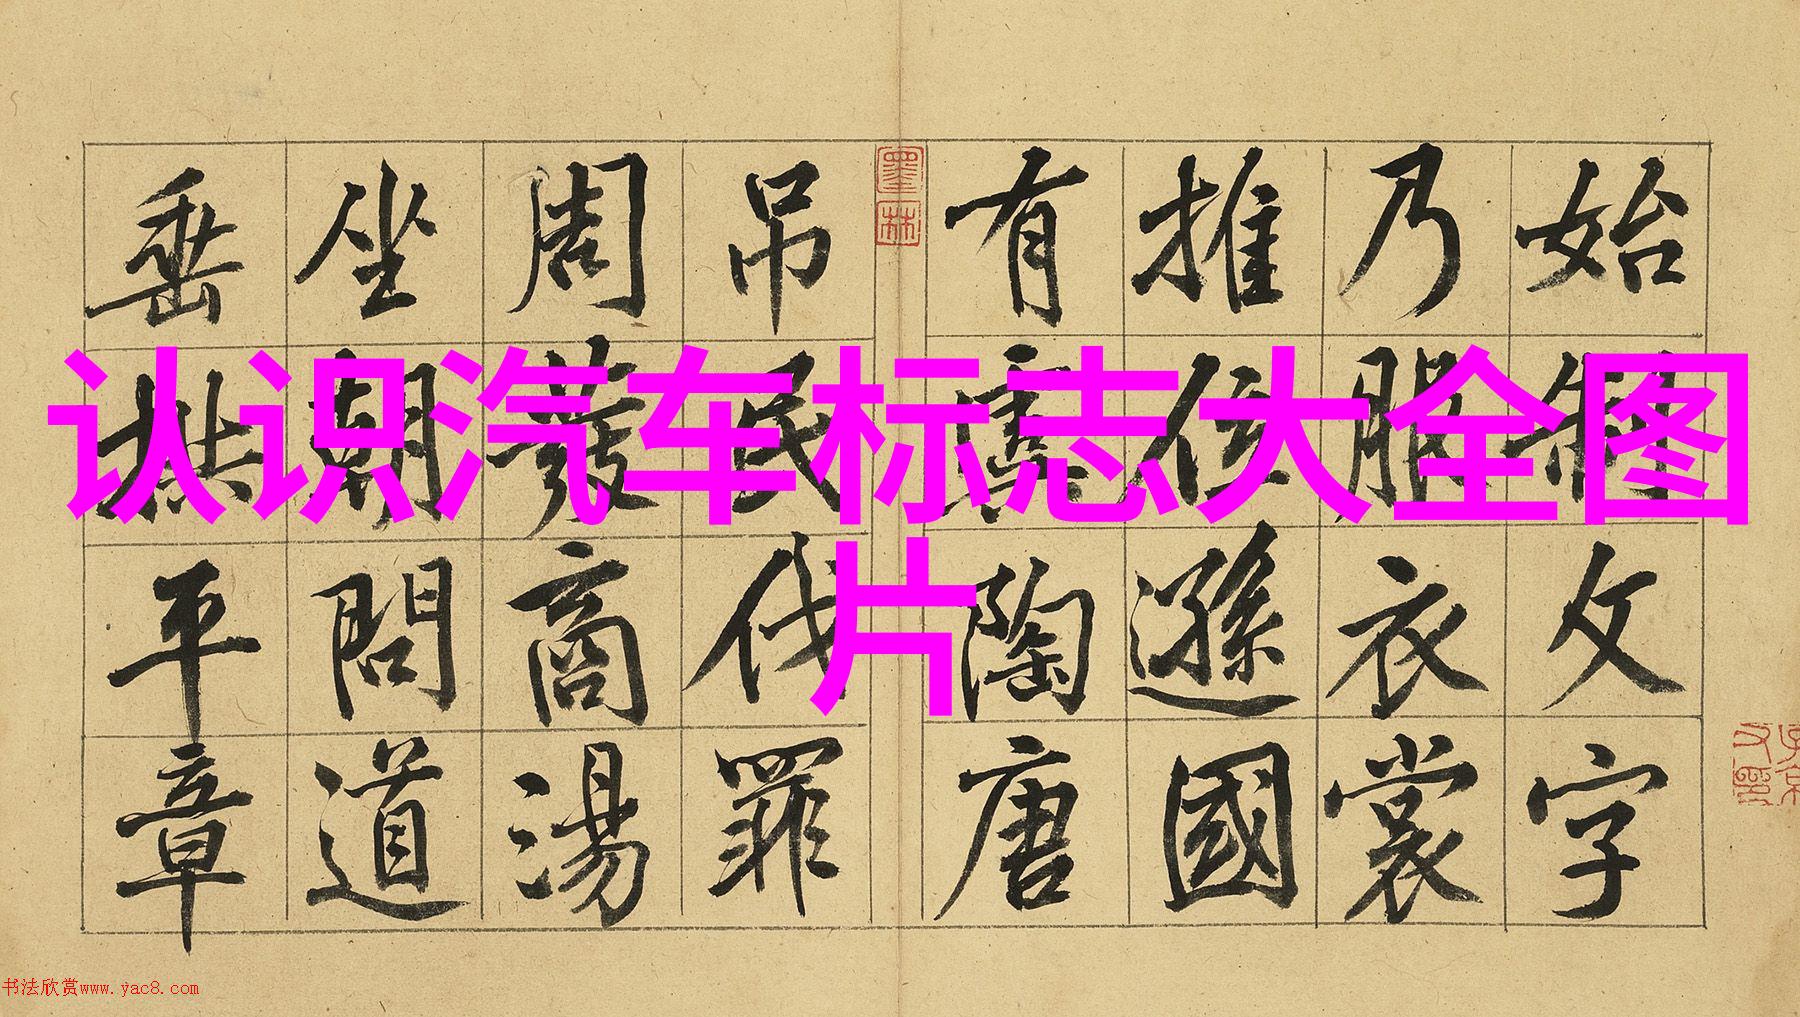 认识汽车标志大全图
片
始制文字
乃服衣裳
推位遜國
有虞陶唐
吊民伐罪
周發商湯
坐朝問道
垂拱平章
墨林
书法欣赏www.yac8.com